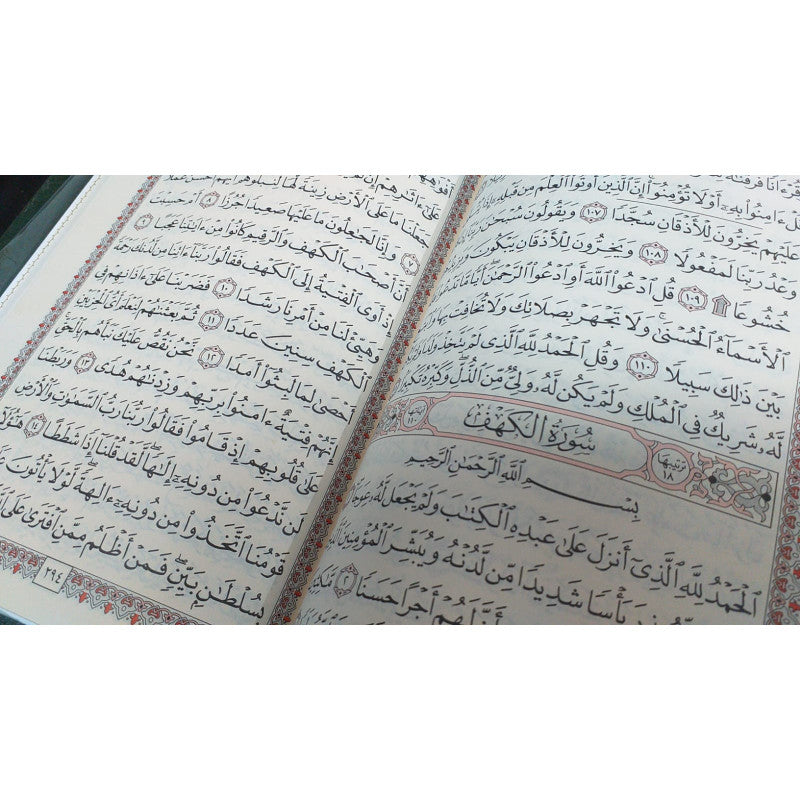 قُلْ ءَامِنُوا۟ بِهِۦٓ أَوْ لَا تُؤْمِنُوٓا۟ إِنَّ ٱلَّذِينَ أُوتُوا۟ ٱلْعِلْمَ مِن قَبْلِهِۦٓ
عَلَيْهِمْ يَخِرُّونَ لِلْأَذْقَانِ سُجَّدًا ١٠٧ وَيَقُولُونَ سُبْحَٰنَ
وَعْدُ رَبِّنَا لَمَفْعُولًا ١٠٨ وَيَخِرُّونَ لِلْأَذْقَانِ يَبْكُونَ
خُشُوعًا ۩ ١٠٩ قُلِ ٱدْعُوا۟ ٱللَّهَ أَوِ ٱدْعُوا۟ ٱلرَّحْمَٰنَ أَيًّا مَّا تَدْعُوا۟
ٱلْأَسْمَآءُ ٱلْحُسْنَىٰ وَلَا تَجْهَرْ بِصَلَاتِكَ وَلَا تُخَافِتْ بِهَا
بَيْنَ ذَٰلِكَ سَبِيلًا ١١٠ وَقُلِ ٱلْحَمْدُ لِلَّهِ ٱلَّذِى لَمْ يَتَّخِذْ وَلَدًا
لَّهُۥ شَرِيكٌ فِى ٱلْمُلْكِ وَلَمْ يَكُن لَّهُۥ وَلِىٌّ مِّنَ ٱلذُّلِّ وَكَبِّرْهُ تَكْبِيرًا
ترتيبها ١٨ سُورَةُ ٱلْكَهْفِ
بِسْمِ ٱللَّهِ ٱلرَّحْمَٰنِ ٱلرَّحِيمِ
ٱلْحَمْدُ لِلَّهِ ٱلَّذِىٓ أَنزَلَ عَلَىٰ عَبْدِهِ ٱلْكِتَٰبَ وَلَمْ يَجْعَل لَّهُۥ عِوَجَا
بَأْسًا شَدِيدًا مِّن لَّدُنْهُ وَيُبَشِّرَ ٱلْمُؤْمِنِينَ
أَنَّ لَهُمْ أَجْرًا حَسَنًا ٢ مَّٰكِثِينَ
عَلَىٰٓ ءَاثَٰرِهِمْ إِن
جَعَلْنَا مَا عَلَى ٱلْأَرْضِ زِينَةً لَّهَا لِنَبْلُوَهُمْ أَيُّهُمْ أَحْسَنُ عَمَلًا
٧ وَإِنَّا لَجَٰعِلُونَ مَا عَلَيْهَا صَعِيدًا جُرُزًا ٨ أَمْ حَسِبْتَ
أَنَّ أَصْحَٰبَ ٱلْكَهْفِ وَٱلرَّقِيمِ كَانُوا۟ مِنْ ءَايَٰتِنَا عَجَبًا ٩
إِذْ أَوَى ٱلْفِتْيَةُ إِلَى ٱلْكَهْفِ فَقَالُوا۟ رَبَّنَآ ءَاتِنَا مِن لَّدُنكَ رَحْمَةً
وَهَيِّئْ لَنَا مِنْ أَمْرِنَا رَشَدًا ١٠ فَضَرَبْنَا عَلَىٰٓ ءَاذَانِهِمْ فِى
ٱلْكَهْفِ سِنِينَ عَدَدًا ١١ ثُمَّ بَعَثْنَٰهُمْ لِنَعْلَمَ أَىُّ ٱلْحِزْبَيْنِ
أَحْصَىٰ لِمَا لَبِثُوٓا۟ أَمَدًا ١٢ نَّحْنُ نَقُصُّ عَلَيْكَ نَبَأَهُم بِٱلْحَقِّ
إِنَّهُمْ فِتْيَةٌ ءَامَنُوا۟ بِرَبِّهِمْ وَزِدْنَٰهُمْ هُدًى ١٣ وَرَبَطْنَا
عَلَىٰ قُلُوبِهِمْ إِذْ قَامُوا۟ فَقَالُوا۟ رَبُّنَا رَبُّ ٱلسَّمَٰوَٰتِ وَٱلْأَرْضِ
لَن نَّدْعُوَا۟ مِن دُونِهِۦٓ إِلَٰهًا لَّقَدْ قُلْنَآ إِذًا شَطَطًا ١٤ هَٰٓؤُلَآءِ
قَوْمُنَا ٱتَّخَذُوا۟ مِن دُونِهِۦٓ ءَالِهَةً لَّوْلَا يَأْتُونَ عَلَيْهِم
بِسُلْطَٰنٍۭ بَيِّنٍ فَمَنْ أَظْلَمُ مِمَّنِ ٱفْتَرَىٰ عَلَى ٱللَّهِ
٢٩٤